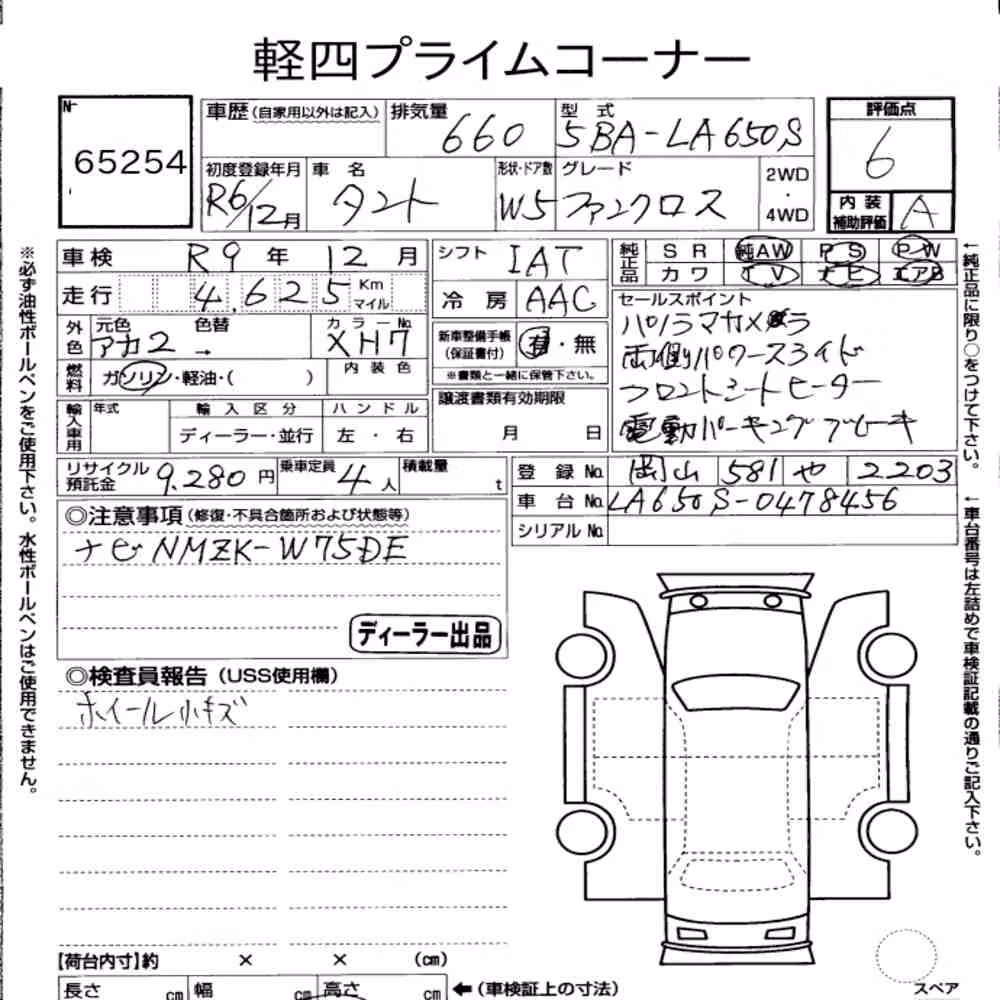 軽四プライムコーナー
No 65254
車歴 (自家用以外は記入) 排気量 660 型式 5BA-LA650S 評価点 6
初度登録年月 R6/12月 車名 タント 形状・ドア数 W5 グレード ファンクロス 2WD・4WD 内装補助評価 A
車検 R9年 12月 シフト IAT 純正品 SR 純AW PS PW
カワ TV ナビ エアB
走行 4,625 Km マイル 冷房 AAC
外色 元色 アカ2 色替 → カラーNo. XH7
新車整備手帳 (保証書付) 有・無
※書類と一緒に保管下さい。
燃料 ガソリン・軽油・( ) 内装色
セールスポイント
パノラマカメラ
両側パワースライド
フロントシートヒーター
電動パーキングブレーキ
輸入車用 年式 輸入区分 ディーラー・並行 ハンドル 左・右
譲渡書類有効期限 月 日
リサイクル預託金 9,280円 乗車定員 4人 積載量 t
登録No. 岡山 581 や 2203
車台No. LA650S-0478456
シリアルNo.
◎注意事項 (修復・不具合箇所および状態等)
ナビ NMZK-W75DE
ディーラー出品
◎検査員報告 (USS使用欄)
ホイール小キズ
【荷台内寸】約 × × (cm)
長さ cm 幅 cm 高さ cm ←(車検証上の寸法)
スペア
※必ず油性ボールペンをご使用下さい。水性ボールペンはご使用できません。
←純正品に限り○をつけて下さい。
←車台番号は左詰めで車検証記載の通りご記入下さい。